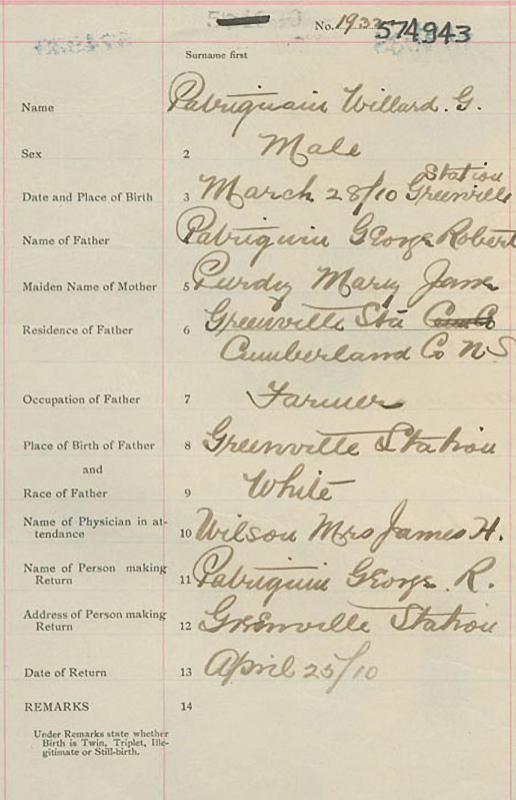 No. 1932 574943
Surname first
Name Patriquin Willard. G.
Sex 2 Male
Station
Date and Place of Birth 3 March 28/10 Greenville
Name of Father Patriquin George Robert
Maiden Name of Mother 5 Purdy Mary Jane
Residence of Father 6 Greenville Sta
Cumberland Co N S
Occupation of Father 7 Farmer
Place of Birth of Father 8 Greenville Station
and
Race of Father 9 White
Name of Physician in at-
tendance 10 Wilson Mrs James H.
Name of Person making
Return 11 Patriquin George. R.
Address of Person making
Return 12 Greenville Station
Date of Return 13 April 25/10
REMARKS 14
Under Remarks state whether
Birth is Twin, Triplet, Ille-
gitimate or Still-birth.